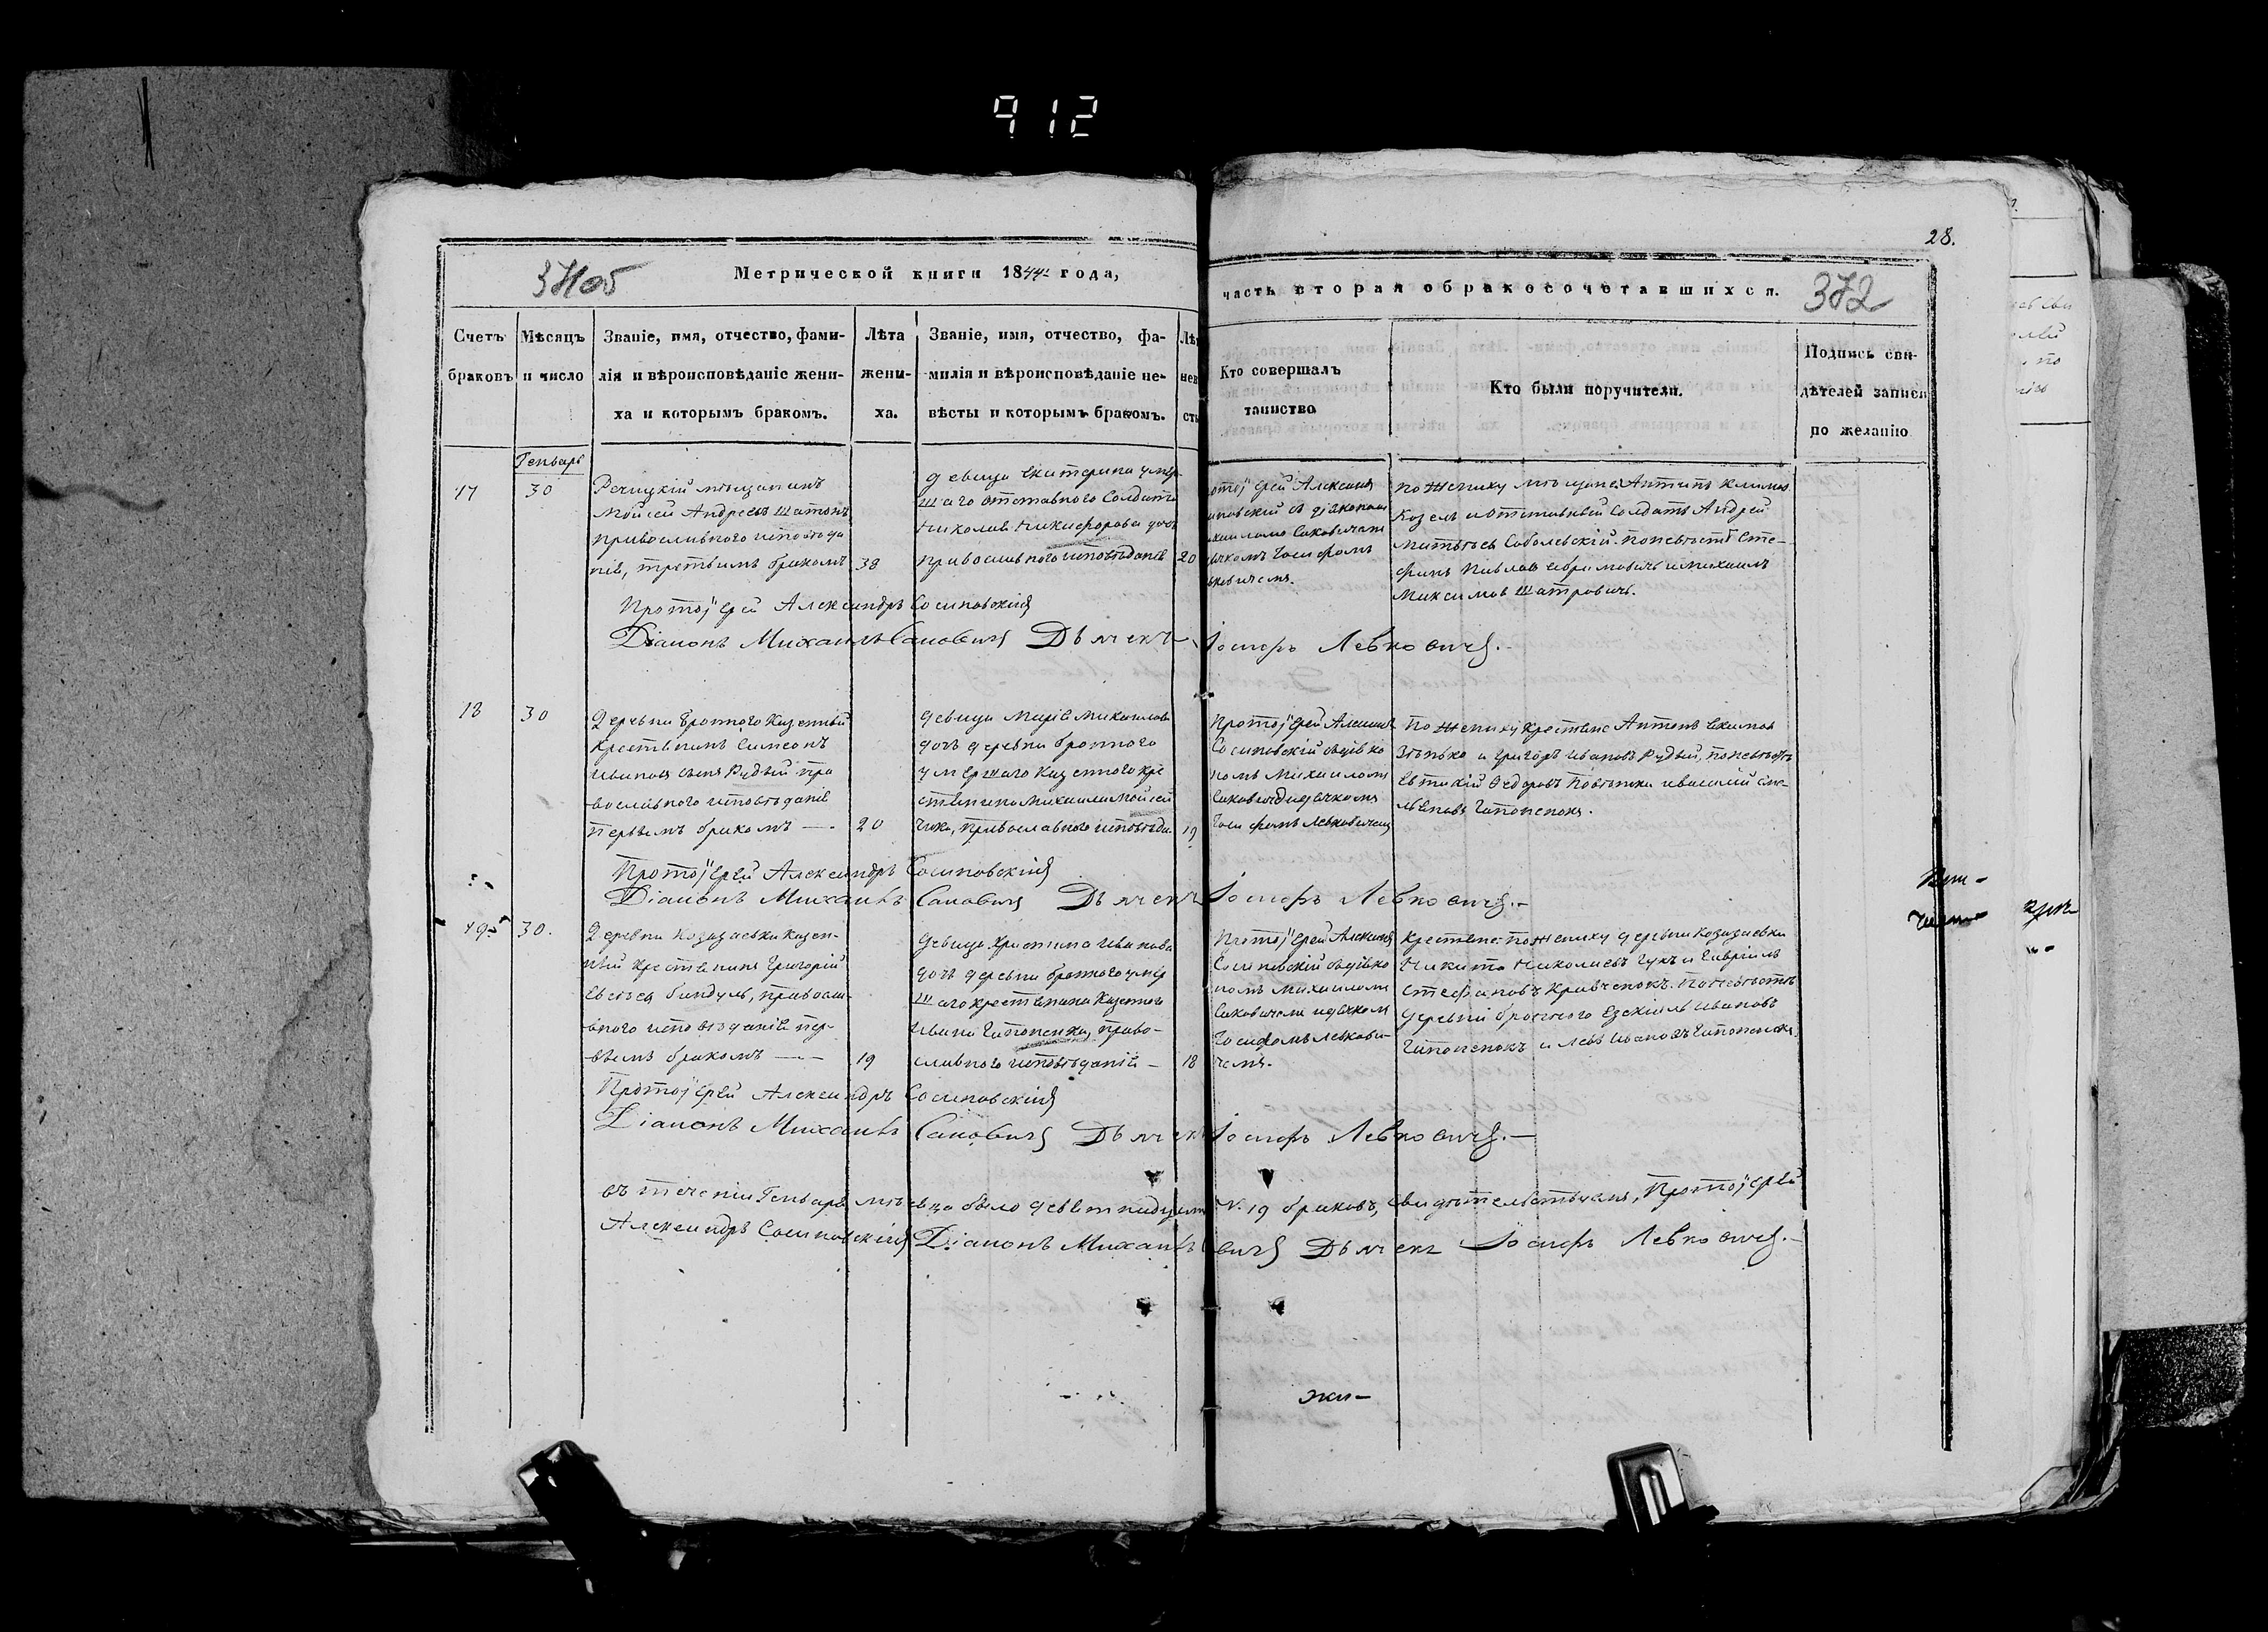 912
28.
Метрической книги 1844 года,
часть вторая о бракосочетавшихся.
372
Счетъ браковъ
Мѣсяцъ и число
Званіе, имя, отчество, фами-
лія и вѣроисповѣданіе жени-
ха и которымъ бракомъ.
Лѣта
жени-
ха.
Званіе, имя, отчество, фа-
милія и вѣроисповѣданіе не-
вѣсты и которымъ бракомъ.
Кто совершалъ
таинство
Кто были поручители.
Подпись сви-
дѣтелей записи
по желанію
Генварь
17
30
Речицкій мѣщанинъ
Мойсей Андреевъ Шатонъ
православного исповѣда
нія, третьимъ бракомъ
38
девица Екатерина умер-
шаго отставного Солдата
Николая Никифорова дочь
православного исповѣданія
20
Александ
въ діякономъ
Саковичемъ
Іосифомъ
по женику мѣщане Антипъ Климов
Козелъ и отставный солдатъ Андрей
Матвѣевъ Соболевскій. по невѣстѣ Сте-
фанъ Павловъ и Михаилъ
Максимовъ Шатровичъ.
Протоіерей Александръ Сосиновскій
Діаконъ Михаилъ Саковичъ Дьячекъ Іосифъ Левковичъ.
18
30
Деревни Бронного Казенный
Крестьянинъ Симеонъ
Ивановъ сынъ Рудый пра
вославного исповѣданія
первымъ бракомъ —.
20
девица Марія Михайлова
дочь деревни Бронного
умершаго Казенного кре
стьянина Михаила Мойсей
чика, православного исповѣда.
19
Протоіерей Александ
Сосиновскій въ діяко
номъ Михаиломъ
Саковичемъ дьячкомъ
Іосифомъ Левковичемъ
По женику Крестьяне Антонъ Екимов
Зѣнько и Григоръ Ивановъ Рудый, по невѣстѣ
Евтихій Федоровъ и василій Еме-
льяновъ Гапоненокъ.
Протоіерей Александръ Сосиновскій
Діаконъ Михаилъ Саковичъ Дьячекъ Іосифъ Левковичъ.—
19
30.
Деревни Козазаевки Казен-
ный крестьянинъ Григорій
Евсѣевъ Бандуль, правосла-
вного исповѣданія пер-
вымъ бракомъ —
19
девица Христина Иванова
дочь деревни Бронного умер
шаго крестьянина Казенного
Ивана Гапоненка, право-
славного исповѣданія —
18
Протоіерей Александ
Сосиновскій въ діяко
номъ Михаиломъ
Саковичемъ и дьячком
Іосифомъ Левкови-
чемъ.
Крестьяне: по женику деревни Козазаевки
Никита Николаевъ Гукъ и Гавріилъ
Стефановъ Кравченокъ. По невѣстѣ
деревни Бронного Езекіиль Ивановъ
Гапоненокъ и Левъ Ивановъ Гапоненокъ.
Протоіерей Александръ Сосиновскій
Діаконъ Михаилъ Саковичъ Дьячекъ Іосифъ Левковичъ.—
въ теченіи Генваря мѣсяца было девятнадцать N. 19 браковъ, свидѣтельствуемъ, Протоіерей
Александръ Сосиновскій Діаконъ Михаилъ Дьячекъ Іосифъ Левковичъ.—